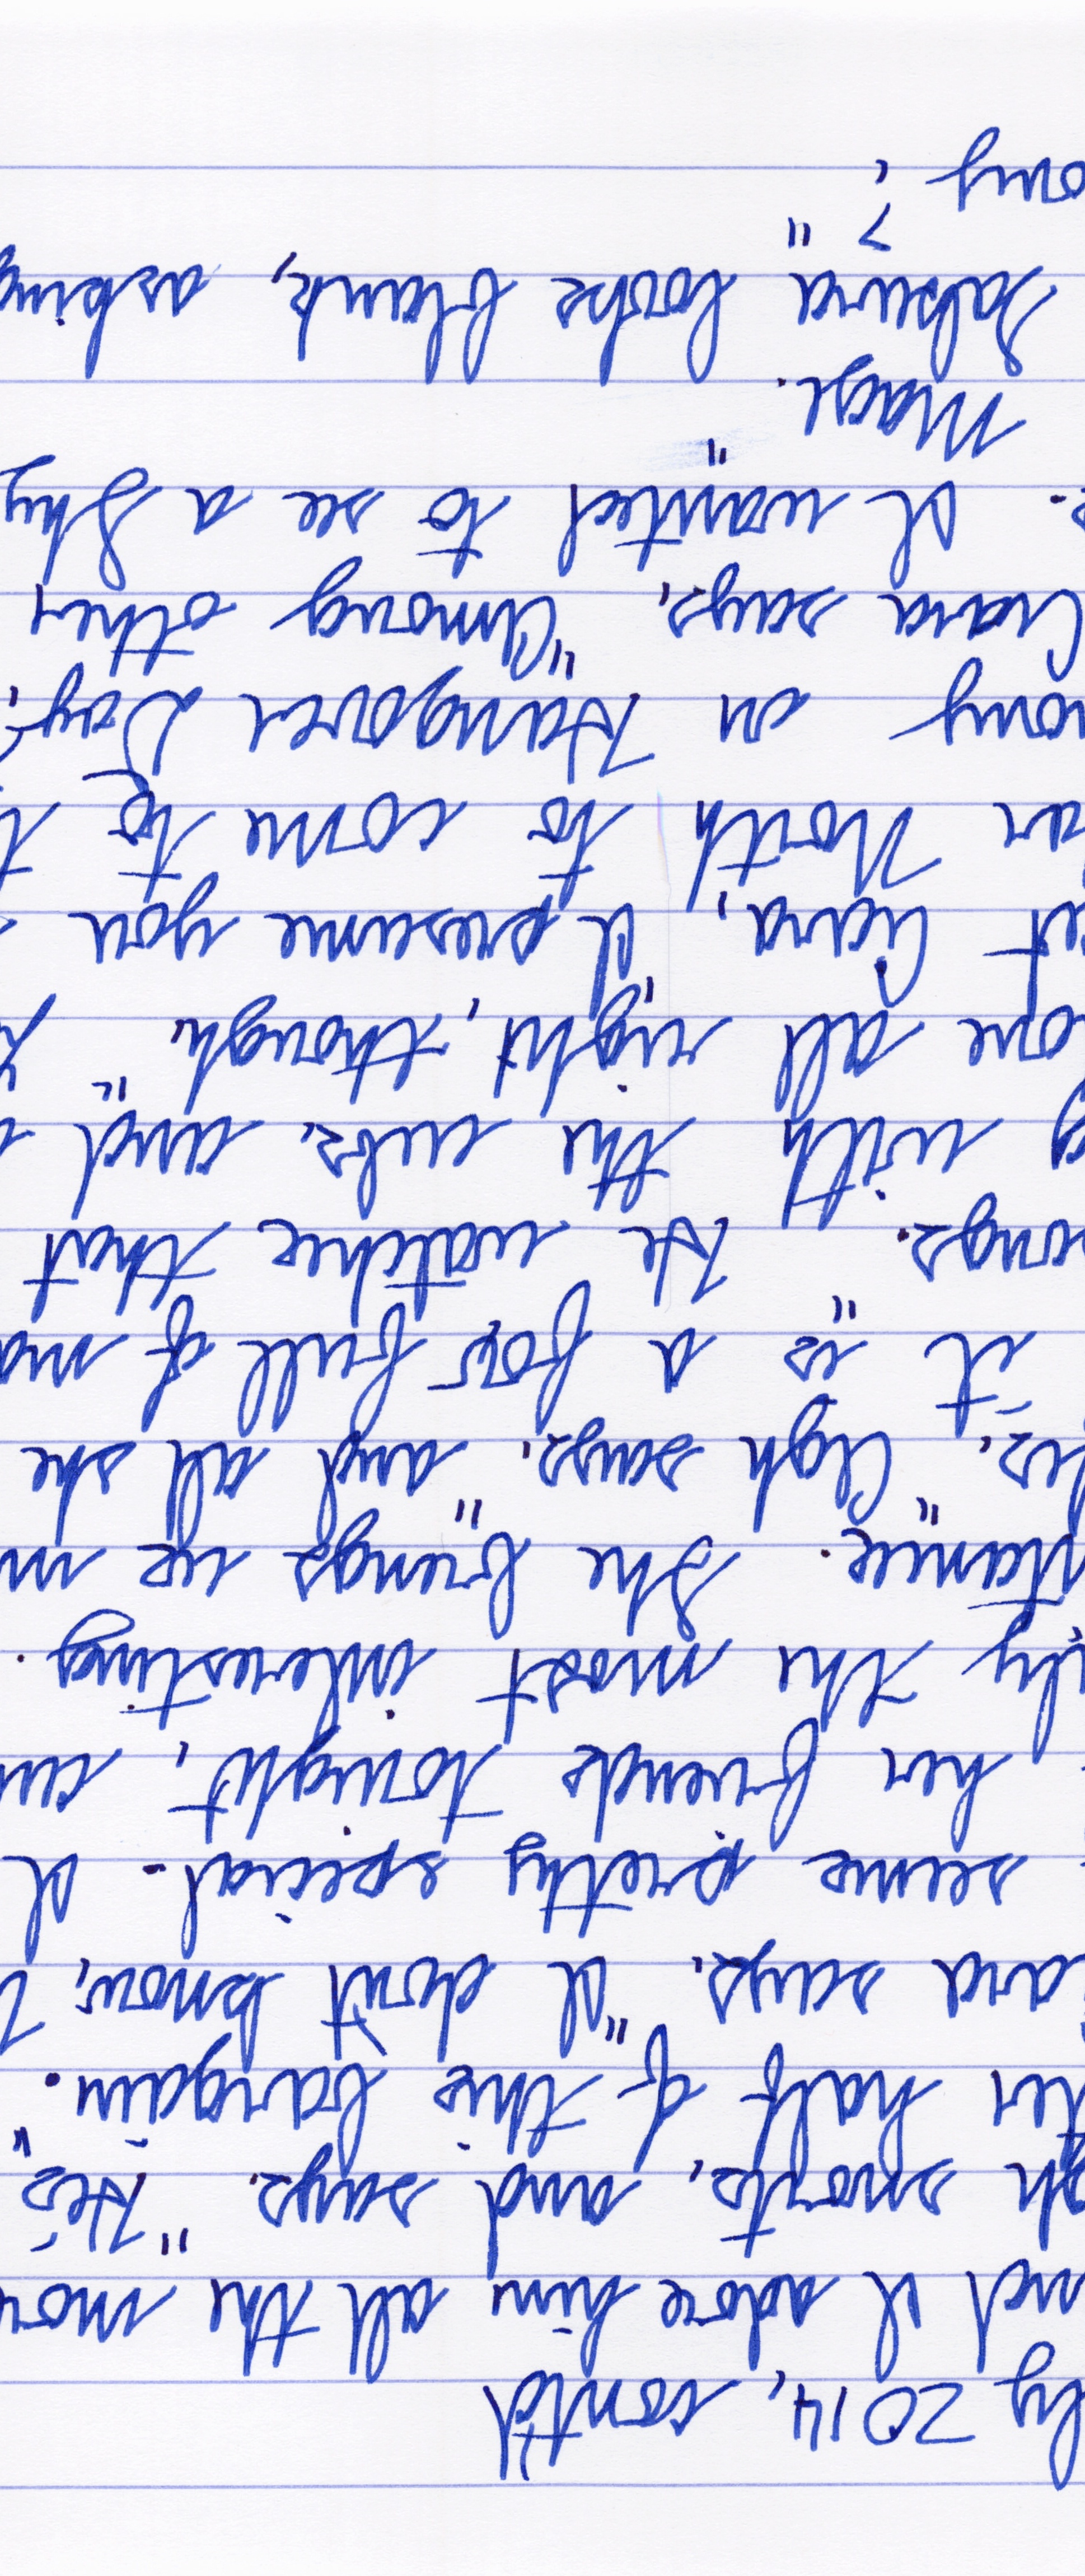 ly 2014, cont'd
nd I adore him all the mor
gh snorts, and says, "He's
ter half of the bargain."
iara says, "I don't know,
seems pretty special. I
her friends tonight,
ly the most interesting
stance. She brings us
les," Ugh says, "and all she
it is a fox full of
ongs." He watches that
g with the cubs, and
one all right, though."
et Ciara, "I presume you
ar North to come to
ony on Hangover Day,
Ciara says, "Among other
s. I wanted to see a Shy
Mage."
Sakura looks blank, asking
ony?"